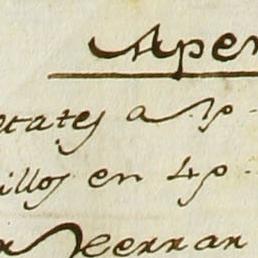 Aper
etates a 1p.
illos en 4p.
Herran